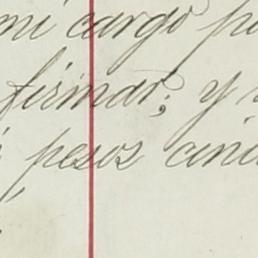 mi cargo
firmar; y
pesos